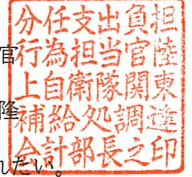 分任支出負担
行為担当官陸
上自衛隊関東
補給処調達
会計部長之印
官
隆
れたい。